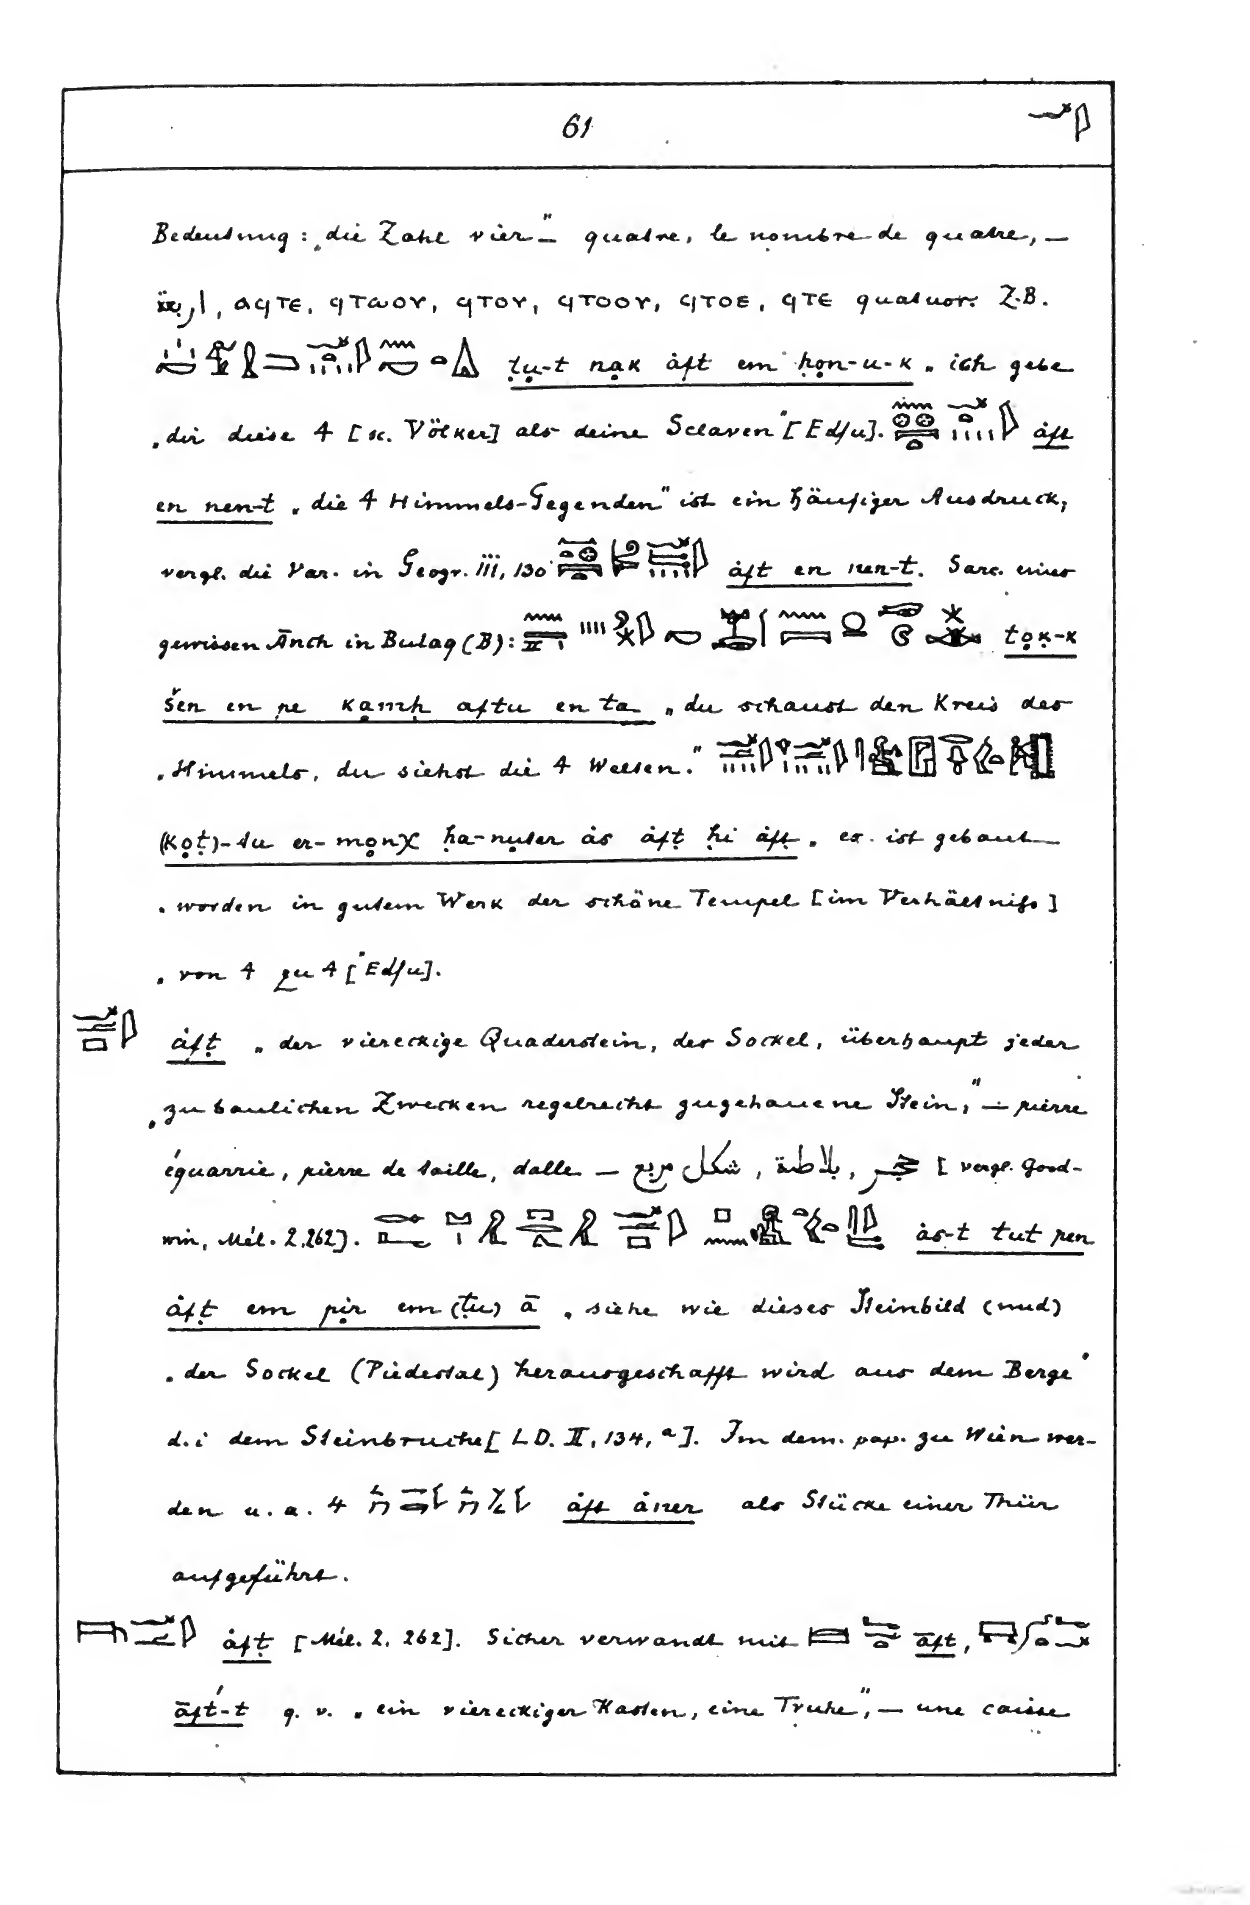 61
Bedeutung: „die Zahl vier“ — quatre, le nombre de quatre, —
اربعة, ϥⲧⲉ, ϥⲧⲱⲟⲩ, ϥⲧⲟⲩ, ϥⲧⲟⲟⲩ, ϥⲧⲟⲉ, ϥⲧⲉ quatuor. Z.B.
ṭu-t nạk ȧft em ḥọn-u-k „ich gebe
„dir diese 4 [sc. Völker] als deine Sclaven“ [Edfu]. ȧft
en nen-t „die 4 Himmels-Gegenden“ ist ein häufiger Ausdruck,
vergl. die Var. in Geogr. III, 130 ȧft en nen-t. Sarc. eines
gewissen Ānch in Bulaq (B): ṭọḳ-k
šen en pe kạmḥ aftu en ta „du schaust den Kreis des
„Himmels, du siehst die 4 Welten.“
(ḳọṭ)-tu er-mọnχ ḥa-nuter ȧs ȧfṭ ḥi ȧfṭ „es ist gebaut
„worden in gutem Werk der schöne Tempel [im Verhältniss]
„von 4 zu 4“ [Edfu].
ȧfṭ „der viereckige Quaderstein, der Sockel, überhaupt jeder
„zu baulichen Zwecken regelrecht zugehauene Stein,“ — pierre
équarrie, pierre de taille, dalle — شكل مربع, بلاطة, حجر [vergl. Good-
win, Mél. 2, 262]. ȧs-t tut pen
ȧfṭ em pịr em (ṭu) ā „siehe wie dieses Steinbild (und)
„der Sockel (Piedestal) herausgeschafft wird aus dem Berge“
d.i dem Steinbruche [LD. II, 134, a]. Im dem. pap. zu Wien wer-
den u. a. 4 ȧft ȧner als Stücke einer Thür
aufgeführt.
ȧfṭ [Mél. 2, 262]. Sicher verwandt mit āft,
āft́-t q. v. „ein viereckiger Kasten, eine Truhe“, — une caisse